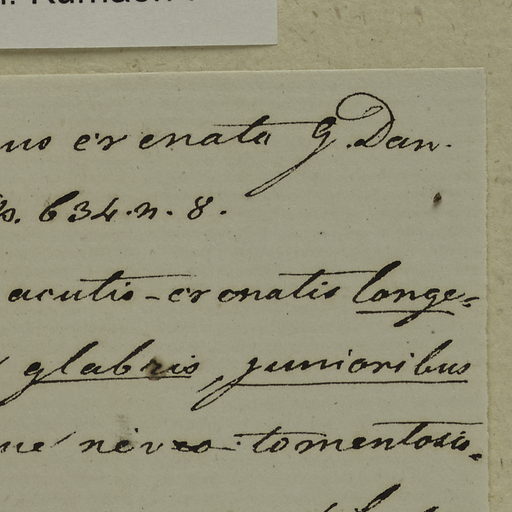 crenata G. Dan.
634. n. 8.
acutis-crenatis longe=
glabris, junioribus
niveo-tomentosis,